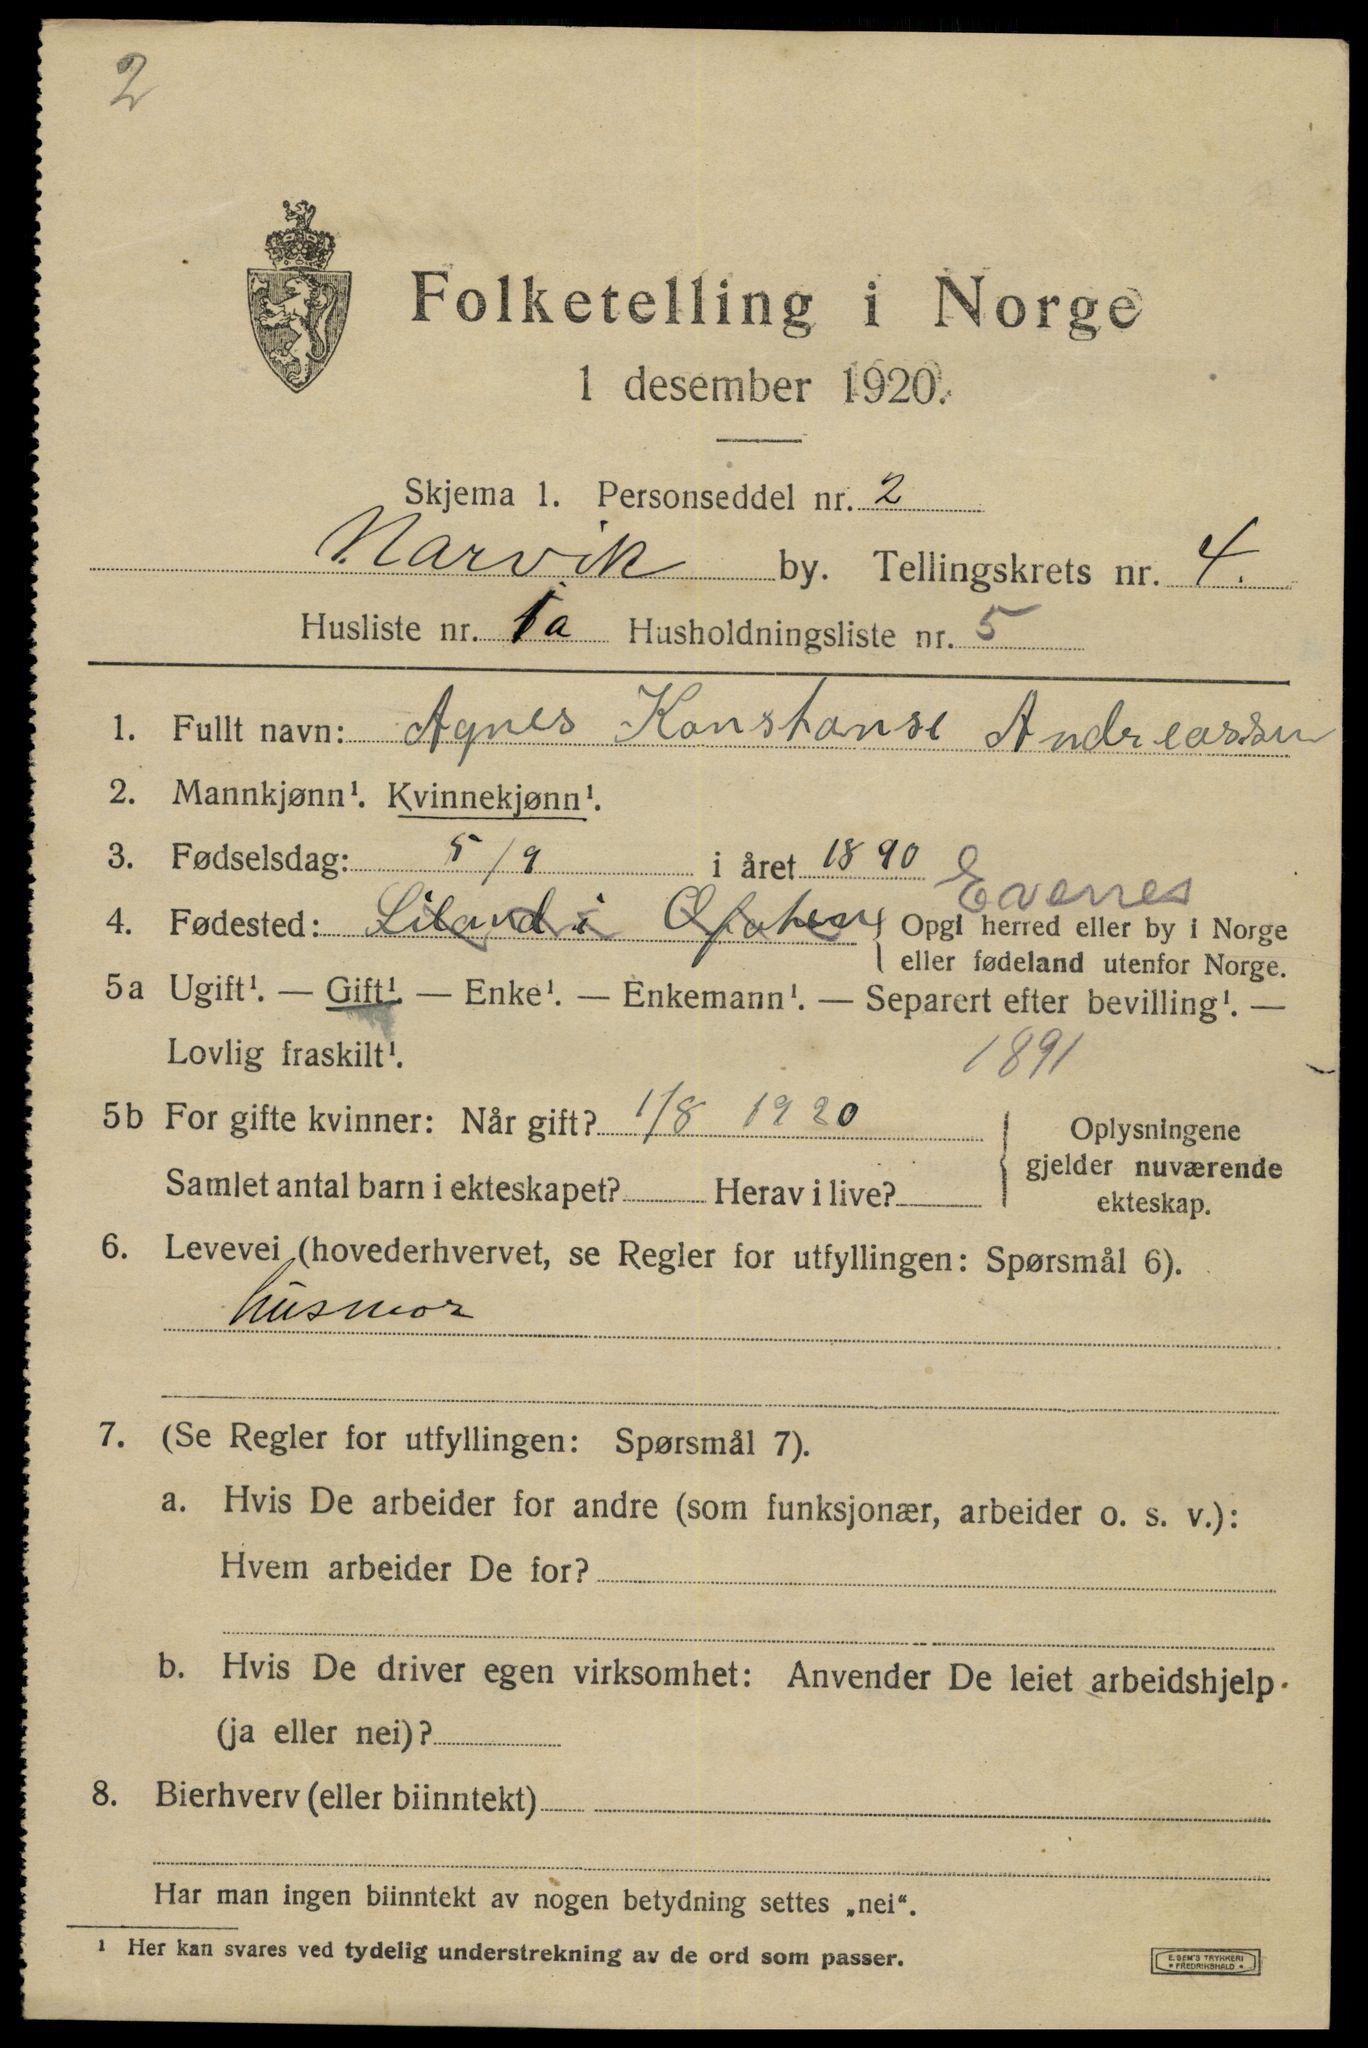 2
Folketelling i Norge
1 desember 1920.
Skjema 1. Personseddel nr. 2
Narvik by. Tellingskrets nr. 4.
Husliste nr. 1a Husholdningsliste nr. 5
1. Fullt navn: Agnes Konstanse Andreassen
2. Mannkjønn¹. Kvinnekjønn¹.
3. Fødselsdag: 5/9 i året 1890
Evenes
4. Fødested: Liland i Ofoten { Opgi herred eller by i Norge
eller fødeland utenfor Norge.
5a Ugift¹. — Gift¹. — Enke¹. — Enkemann¹. — Separert efter bevilling¹. —
Lovlig fraskilt¹. 1891
5b For gifte kvinner: Når gift? 1/8 1920
Samlet antal barn i ekteskapet? Herav i live?
Oplysningene
gjelder nuværende
ekteskap.
6. Levevei (hovederhvervet, se Regler for utfyllingen: Spørsmål 6).
husmor
7. (Se Regler for utfyllingen: Spørsmål 7).
a. Hvis De arbeider for andre (som funksjonær, arbeider o. s. v.):
Hvem arbeider De for?
b. Hvis De driver egen virksomhet: Anvender De leiet arbeidshjelp
(ja eller nei)?
8. Bierhverv (eller biinntekt)
Har man ingen biinntekt av nogen betydning settes „nei“.
¹ Her kan svares ved tydelig understrekning av de ord som passer.
E. SEM'S TRYKKERI
• FREDRIKSHALD •